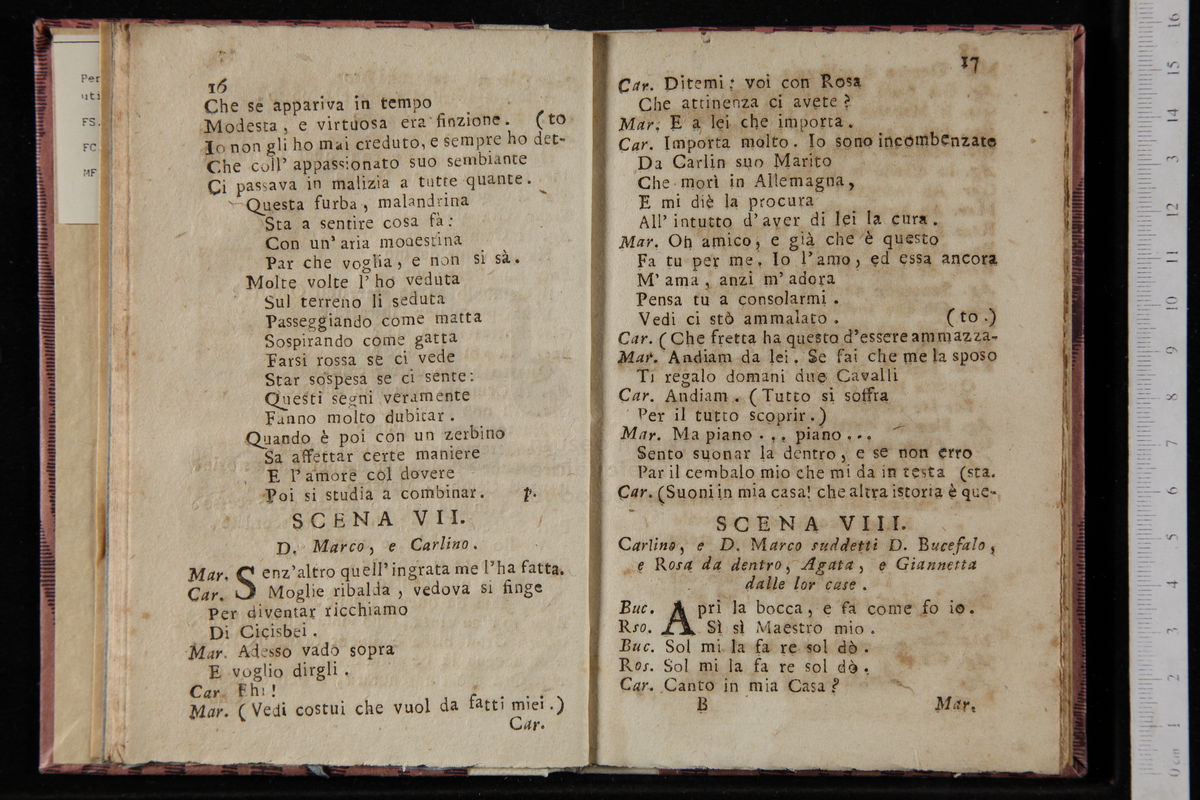 Per
uti
FS.
FC.
MF
16
Che se appariva in tempo
Modesta, e virtuosa era finzione. (to
Io non gli ho mai creduto, e sempre ho det-
Che coll' appassionato suo sembiante
Ci passava in malizia a tutte quante.
Questa furba, malandrina
Sta a sentire cosa fà:
Con un' aria modestina
Par che voglia, e non si sà.
Molte volte l' ho veduta
Sul terreno lì seduta
Passeggiando come matta
Sospirando come gatta
Farsi rossa se ci vede
Star sospesa se ci sente:
Questi segni veramente
Fanno molto dubitar.
Quando è poi con un zerbino
Sa affettar certe maniere
E l'amore col dovere
Poi si studia a combinar. p.
SCENA VII.
D. Marco, e Carlino.
Mar. Senz'altro quell'ingrata me l'ha fatta.
Car. Moglie ribalda, vedova si finge
Per diventar ricchiamo
Di Cicisbei.
Mar. Adesso vado sopra
E voglio dirgli.
Car. Ehi!
Mar. (Vedi costui che vuol da fatti miei.)
Car.
17
Car. Ditemi: voi con Rosa
Che attinenza ci avete?
Mar. E a lei che importa.
Car. Importa molto. Io sono incombenzato
Da Carlin suo Marito
Che morì in Allemagna,
E mi diè la procura
All' intutto d'aver di lei la cura.
Mar. Oh amico, e già che è questo
Fa tu per me. Io l'amo, ed essa ancora
M' ama, anzi m' adora
Pensa tu a consolarmi.
Vedi ci stò ammalato. (to.)
Car. (Che fretta ha questo d'essere ammazza-
Mar. Andiam da lei. Se fai che me la sposo
Ti regalo domani due Cavalli
Car. Andiam. (Tutto si soffra
Per il tutto scoprir.)
Mar. Ma piano... piano...
Sento suonar la dentro, e se non erro
Par il cembalo mio che mi da in testa (sta.
Car. (Suoni in mia casa! che altra istoria è que-
SCENA VIII.
Carlino, e D. Marco suddetti D. Bucefalo,
e Rosa da dentro, Agata, e Giannetta
dalle lor case.
Buc. Apri la bocca, e fa come fo io.
Rso. Sì sì Maestro mio.
Buc. Sol mi la fa re sol dò.
Ros. Sol mi la fa re sol dò.
Car. Canto in mia Casa?
B Mar.
0 cm 1 2 3 4 5 6 7 8 9 10 11 12 13 14 15 16